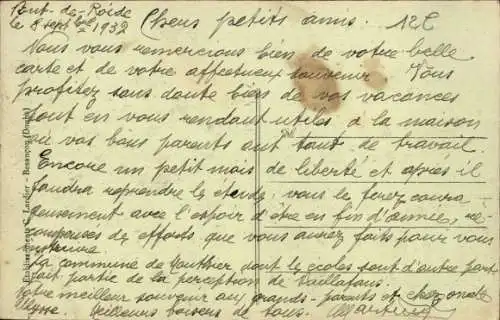 Pont-de-Roide
le 8 septbre 1932
Chers petits amis.
Nous vous remercions bien de votre belle
carte et de votre affectueux souvenir Vous
profitez sans doute bien de vos vacances
tout en vous rendant utiles à la maison
où vos bons parents ont tant de travail.
Encore un petit mois de liberté et après il
faudra reprendre les études, vous le ferez coura-
geusement avec l'espoir d'être en fin d'année, ré-
compensés des efforts que vous aurez faits pour vous
instruire
La commune de dont les écoles sont d'autre part
fait partie de la perception de Vuillafans.
Notre meilleur souvenir aux grands-parents et chez oncle
Ulysse. Meilleurs baisers de tous.
Etablissements C. Lardier - Besançon (Doubs)